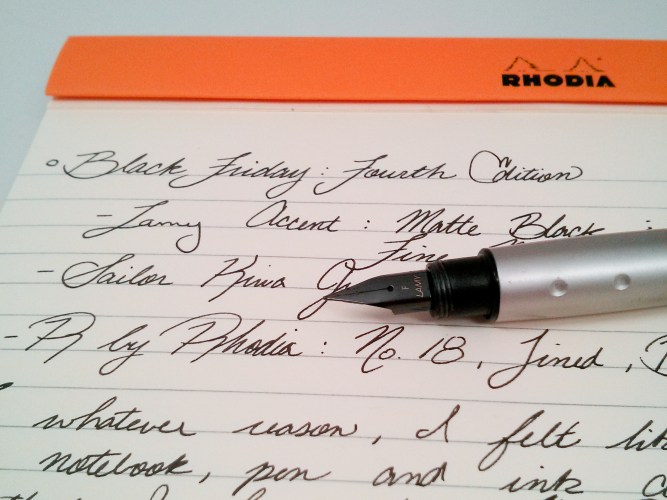 RHODIA
Black Friday: Fourth Edition
- Lamy Accent: Matte Black:
Fine
- Sailor Kiwa
- R by Rhodia: No. 18, Lined,
whatever reason, I felt
notebook, pen and ink
F
LAMY